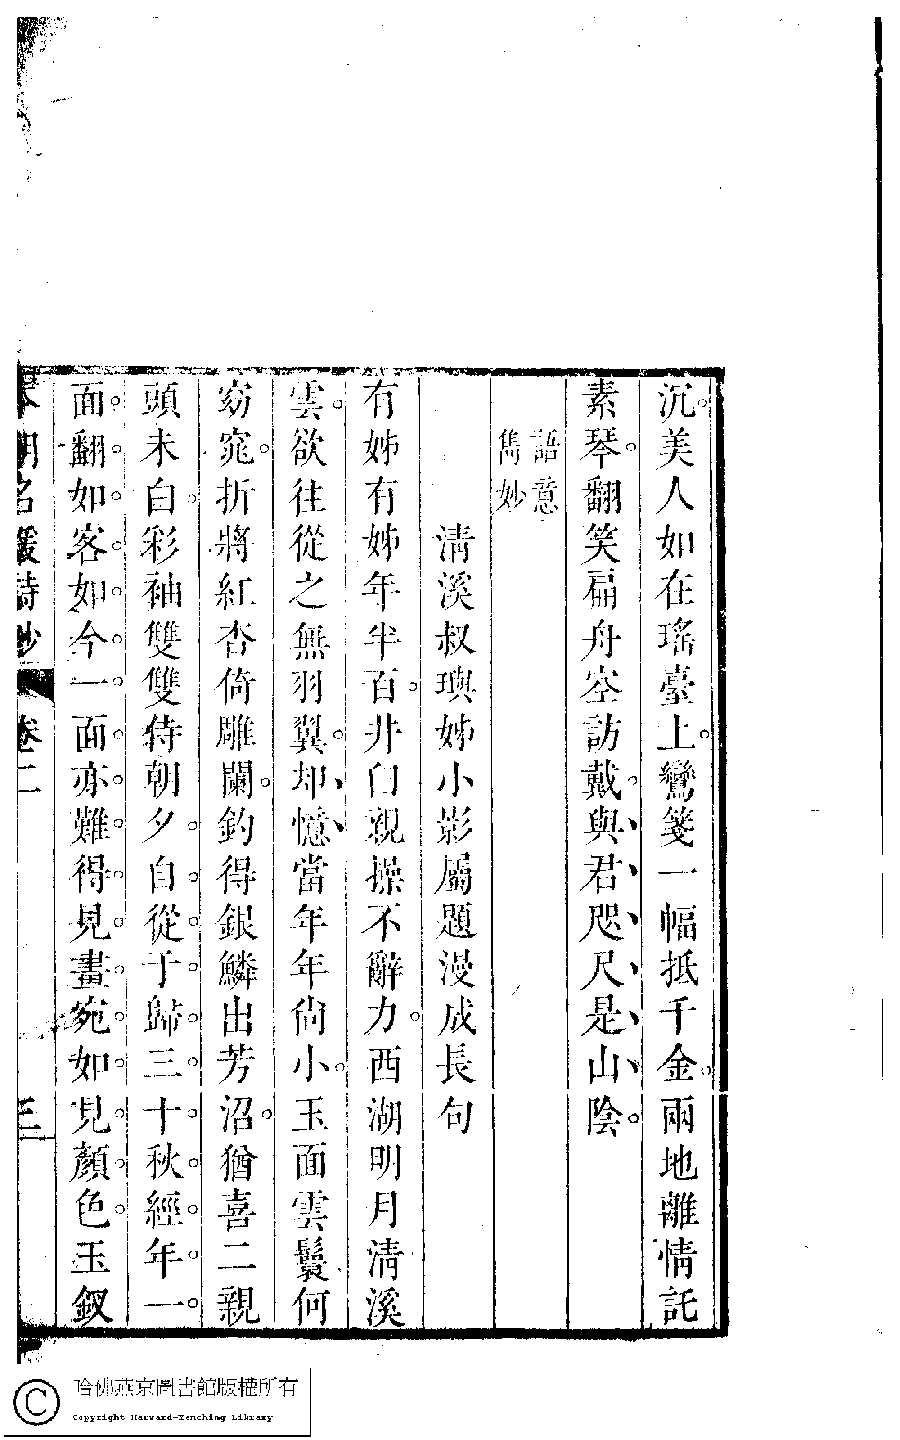 沉美人如在瑤臺上鸞箋一幅抵千金兩地離情託
素琴翻笑扁舟空訪戴與君咫尺是山陰
語意
雋妙
清溪叔璵姊小影屬題漫成長句
有姊有姊年半百井臼親操不辭力西湖明月清溪
雲欲往從之無羽翼却憶當年年尚小玉面雲鬟何
窈窕折將紅杏倚雕闌釣得銀鱗出芳沼猶喜二親
頭未白彩袖雙雙侍朝夕自從于歸三十秋經年一
面翻如客如今一面亦難得見畫宛如見顏色玉釵
本朝名媛詩鈔
卷二
三
哈佛燕京圖書館版權所有
Copyright Harvard-Yenching Library